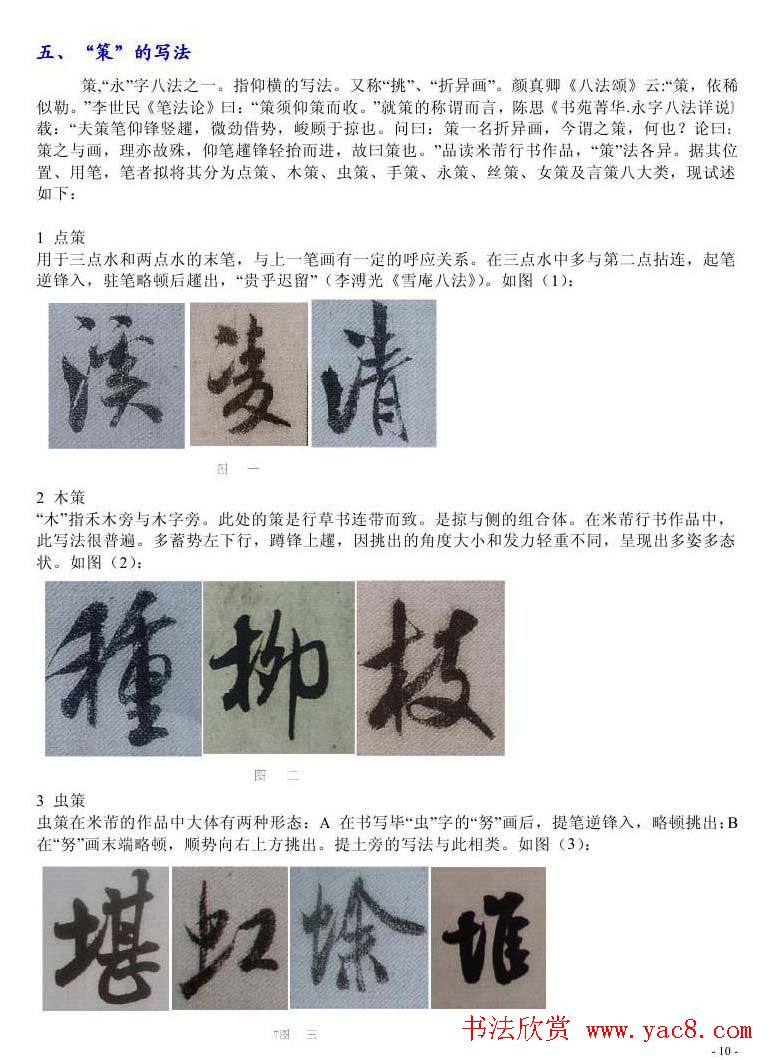 五、“策”的写法
策,“永”字八法之一。指仰横的写法。又称“挑”、“折异画”。颜真卿《八法颂》云:“策，依稀
似勒。”李世民《笔法论》曰：“策须仰策而收。”就策的称谓而言，陈思《书苑菁华.永字八法详说》
载：“夫策笔仰锋竖趯，微劲借势，峻顾于掠也。问曰：策一名折异画，今谓之策，何也？论曰：
策之与画，理亦故殊，仰笔趯锋轻抬而进，故曰策也。”品读米芾行书作品，“策”法各异。据其位
置、用笔，笔者拟将其分为点策、木策、虫策、手策、永策、丝策、女策及言策八大类，现试述
如下：
1 点策
用于三点水和两点水的末笔，与上一笔画有一定的呼应关系。在三点水中多与第二点拈连，起笔
逆锋入，驻笔略顿后趯出，“贵乎迟留”（李溥光《雪庵八法》）。如图（1）：
溪 凌 清
图 一
2 木策
“木”指禾木旁与木字旁。此处的策是行草书连带而致。是掠与侧的组合体。在米芾行书作品中，
此写法很普遍。多蓄势左下行，蹲锋上趯，因挑出的角度大小和发力轻重不同，呈现出多姿多态
状。如图（2）：
種 柳 枝
图 二
3 虫策
虫策在米芾的作品中大体有两种形态：A 在书写毕“虫”字的“努”画后，提笔逆锋入，略顿挑出；B
在“努”画末端略顿，顺势向右上方挑出。提土旁的写法与此相类。如图（3）：
堪 虹 蜍 堆
图 三
书法欣赏 www.yac8.com
- 10 -